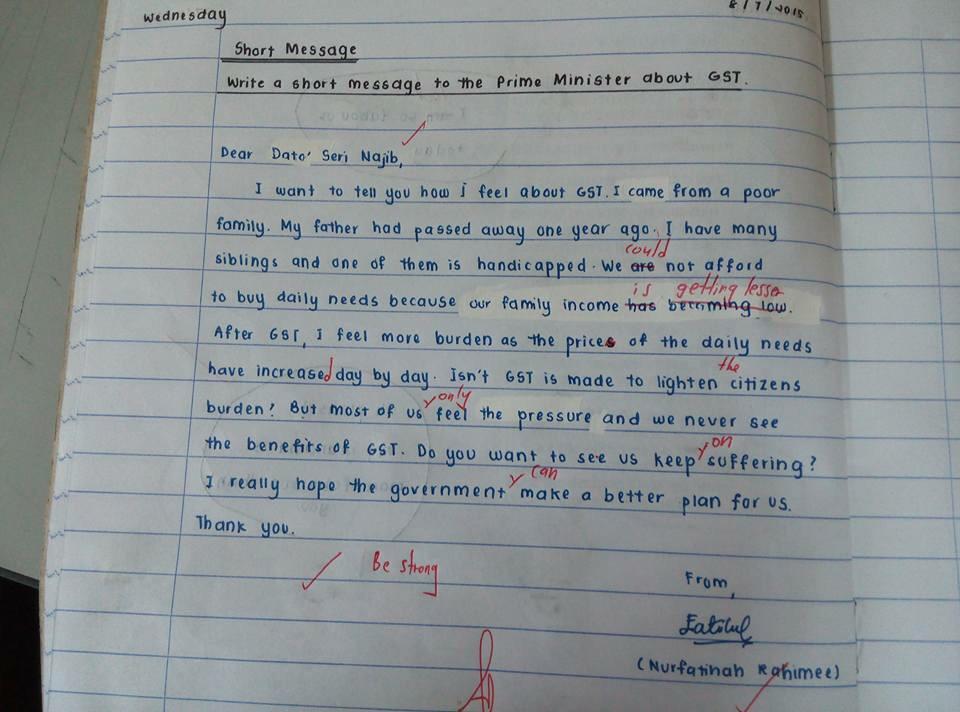 Wednesday
8/7/2015
Short Message
Write a short message to the Prime Minister about GST.
Dear Dato' Seri Najib,
I want to tell you how I feel about GST. I came from a poor
family. My father had passed away one year ago. I have many
could
siblings and one of them is handicapped. We are not afford
is getting lesser
to buy daily needs because our family income has becoming low.
After GST, I feel more burden as the prices of the daily needs
the
have increased day by day. Isn't GST is made to lighten citizens
only
burden? But most of us feel the pressure and we never see
on
the benefits of GST. Do you want to see us keep suffering?
can
I really hope the government make a better plan for us.
Thank you.
Be strong
From,
(Nurfatihah Rahimee)